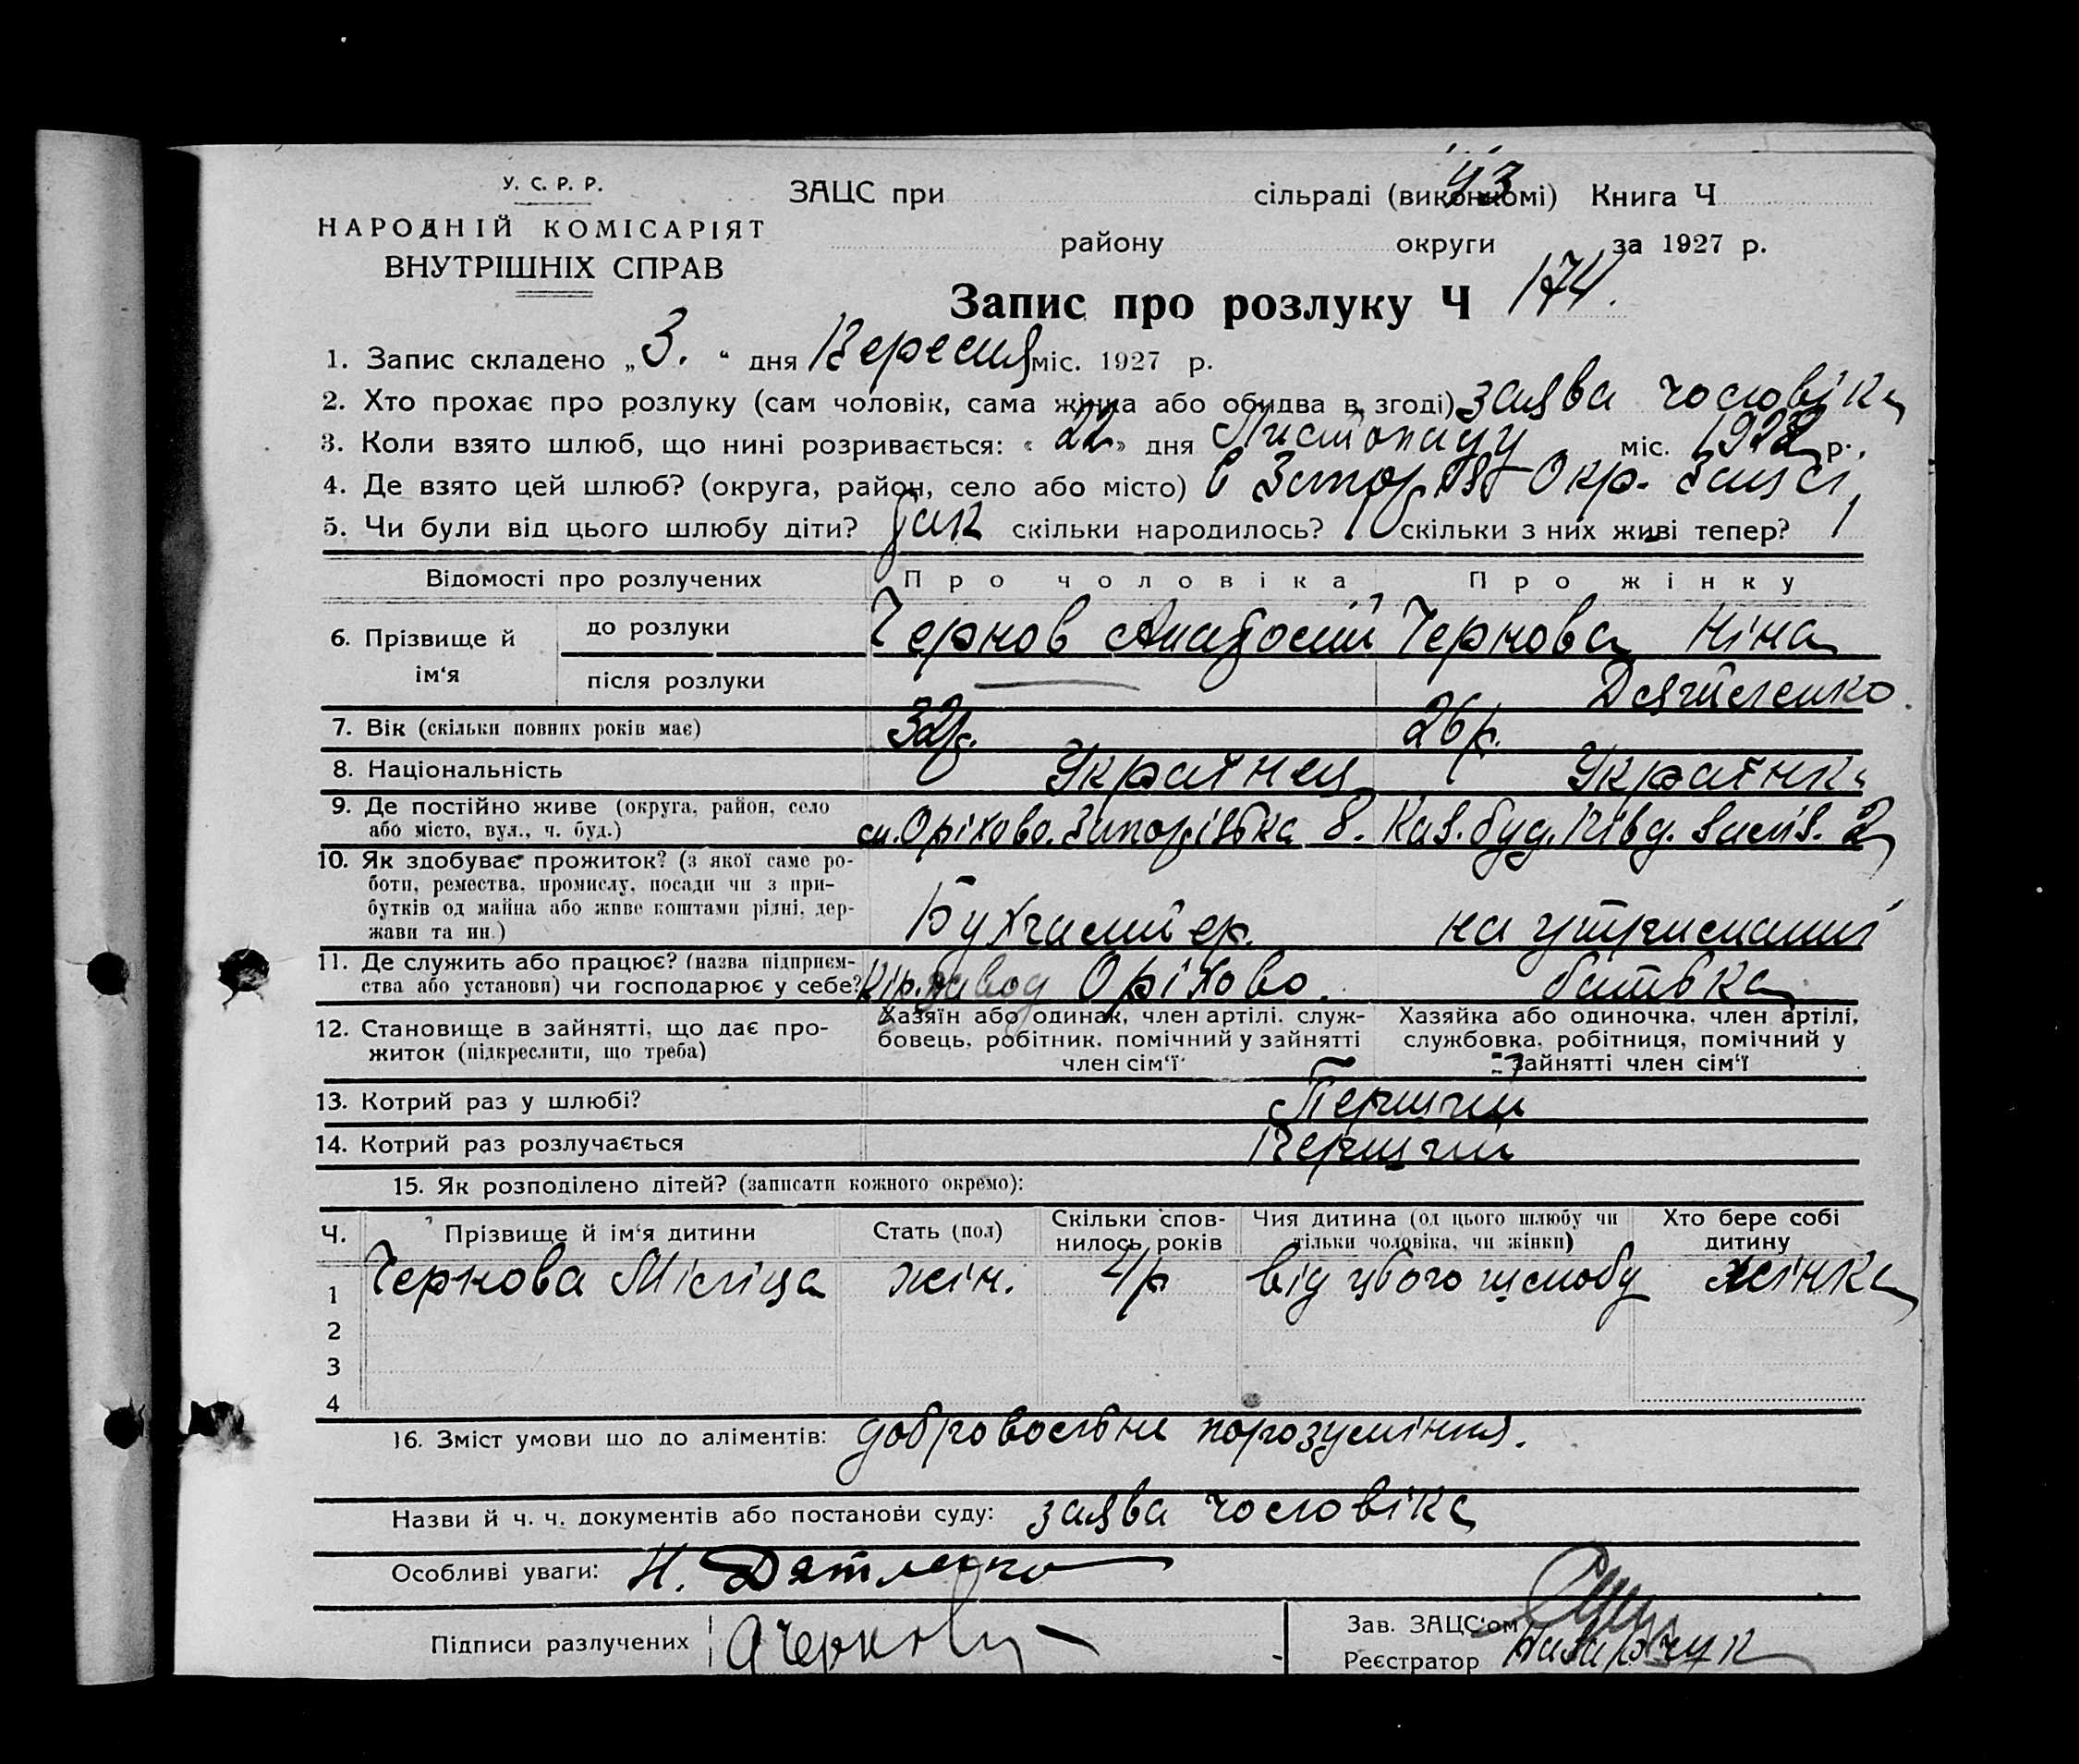 У. С. Р. Р.
НАРОДНІЙ КОМІСАРІЯТ
ВНУТРІШНІХ СПРАВ
ЗАЦС при сільраді (виконкомі) Книга Ч 43
району округи за 1927 р.
Запис про розлуку Ч 174.
1. Запис складено „3.“ дня Вересня міс. 1927 р.
2. Хто прохає про розлуку (сам чоловік, сама жінка або обидва в згоді) заява чоловіка
3. Коли взято шлюб, що нині розривається: «22» дня Листопаду міс. 1922 р.
4. Де взято цей шлюб? (округа, район, село або місто) в Запор. Окр. Загсі
5. Чи були від цього шлюбу діти? так скільки народилось? 1 скільки з них живі тепер? 1
Відомості про розлучених Про чоловіка Про жінку
6. Прізвище й ім‘я до розлуки Чернов Анатолій Чернова Ніна
після розлуки — Дятленко
7. Вік (скільки повних років має) 32 р. 26 р.
8. Національність Українец Українка
9. Де постійно живе (округа, район, село
або місто, вул., ч. буд.) Оріхово. Запорізька 8. Кав. буд. 2
10. Як здобуває прожиток? (з якої саме ро-
боти, ремества, промислу, посади чи з при-
бутків од майна або живе коштами рідні, дер-
жави та ин.) Бухгалтер. на утриманні
11. Де служить або працює? (назва підприєм-
ства або установи) чи господарює у себе? завод Оріхово. батька
12. Становище в зайнятті, що дає про-
житок (підкреслити, що треба)
Хазяїн або одинак, член артілі, служ-
бовець, робітник, помічний у зайнятті
член сім‘ї
Хазяйка або одиночка, член артілі,
службовка, робітниця, помічний у
зайнятті член сім‘ї
13. Котрий раз у шлюбі? Перший
14. Котрий раз розлучається Перший
15. Як розподілено дітей? (записати кожного окремо):
Ч. Прізвище й ім‘я дитини Стать (пол) Скільки спов-
нилось років Чия дитина (од цього шлюбу чи
тільки чоловіка, чи жінки) Хто бере собі
дитину
1 Чернова Міліца жін. 4 р від цього шлюбу жінка
2
3
4
16. Зміст умови що до аліментів: добровольне порозуміння.
Назви й ч. ч. документів або постанови суду: заява чоловіка
Особливі уваги: Н. Дятленко
Підписи разлучених АЧернов
Зав. ЗАЦС‘ом
Реєстратор